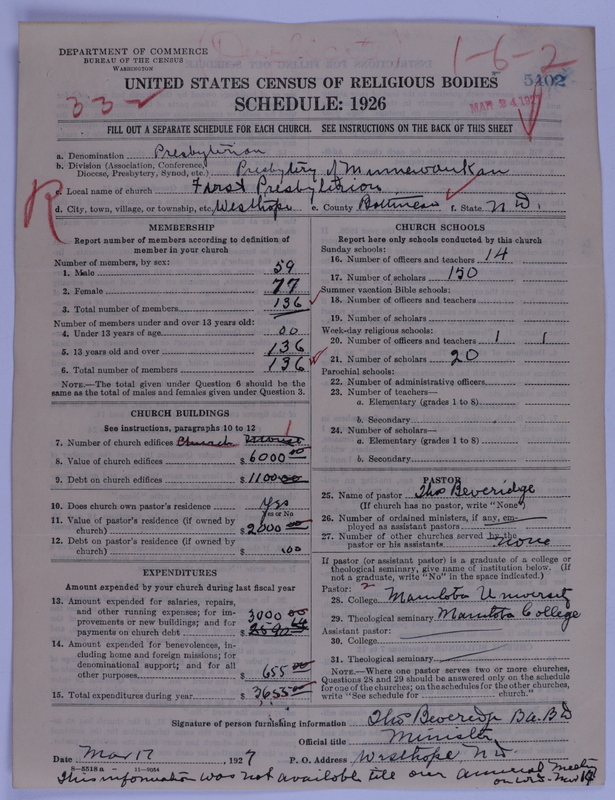 (Duplicate)
DEPARTMENT OF COMMERCE
BUREAU OF THE CENSUS
WASHINGTON
1-6-2
5402
MAR 24 1927
332
UNITED STATES CENSUS OF RELIGIOUS BODIES
SCHEDULE: 1926
FILL OUT A SEPARATE SCHEDULE FOR EACH CHURCH. SEE INSTRUCTIONS ON THE BACK OF THIS SHEET
a. Denomination Presbyterian
b. Division (Association, Conference, Diocese, Presbytery, Synod, etc.) Presbytery of Minnewaukan
c. Local name of church First Presbyterian
R
d. City, town, village, or township, etc. Westhope e. County Bottineau f. State N D.
MEMBERSHIP
Report number of members according to definition of
member in your church
Number of members, by sex:
1. Male 59
2. Female 77
3. Total number of members 136
Number of members under and over 13 years old:
4. Under 13 years of age 00
5. 13 years old and over 136
6. Total number of members 136
NOTE.—The total given under Question 6 should be the
same as the total of males and females given under Question 3.
CHURCH BUILDINGS
See instructions, paragraphs 10 to 12
7. Number of church edifices Church 1
8. Value of church edifices $6000 00
9. Debt on church edifices $1100 00
10. Does church own pastor's residence? Yes
Yes or No
11. Value of pastor's residence (if owned by
church) $2000 00
12. Debt on pastor's residence (if owned by
church) $ .00
EXPENDITURES
Amount expended by your church during last fiscal year
13. Amount expended for salaries, repairs,
and other running expenses; for im-
provements or new buildings; and for 3000 00
payments on church debt $2590 64
14. Amount expended for benevolences, in-
cluding home and foreign missions; for
denominational support; and for all
other purposes $655 00
15. Total expenditures during year $3655 00
CHURCH SCHOOLS
Report here only schools conducted by this church
Sunday schools:
16. Number of officers and teachers 14
17. Number of scholars 150
Summer vacation Bible schools:
18. Number of officers and teachers
19. Number of scholars
Week-day religious schools:
20. Number of officers and teachers 1 1
21. Number of scholars 20
Parochial schools:
22. Number of administrative officers
23. Number of teachers—
a. Elementary (grades 1 to 8)
b. Secondary
24. Number of scholars—
a. Elementary (grades 1 to 8)
b. Secondary
PASTOR
25. Name of pastor Thos Beveridge
(If church has no pastor, write "None")
26. Number of ordained ministers, if any, em-
ployed as assistant pastors
27. Number of other churches served by the
pastor or his assistants none
If pastor (or assistant pastor) is a graduate of a college or
theological seminary, give name of institution below. (If
not a graduate, write "No" in the space indicated.)
Pastor: 2
28. College Manitoba University
29. Theological seminary Manitoba College
Assistant pastor:
30. College
31. Theological seminary
NOTE.—Where one pastor serves two or more churches,
Questions 28 and 29 should be answered only on the schedule
for one of the churches; on the schedules for the other churches,
write "See schedule for church."
Signature of person furnishing information Thos Beveridge Ba. BD
Official title Minister
Date Mar 17, 1927 P. O. Address Westhope N D.
8—5518 a 11—9054
This information was not available till our annual meeting
on